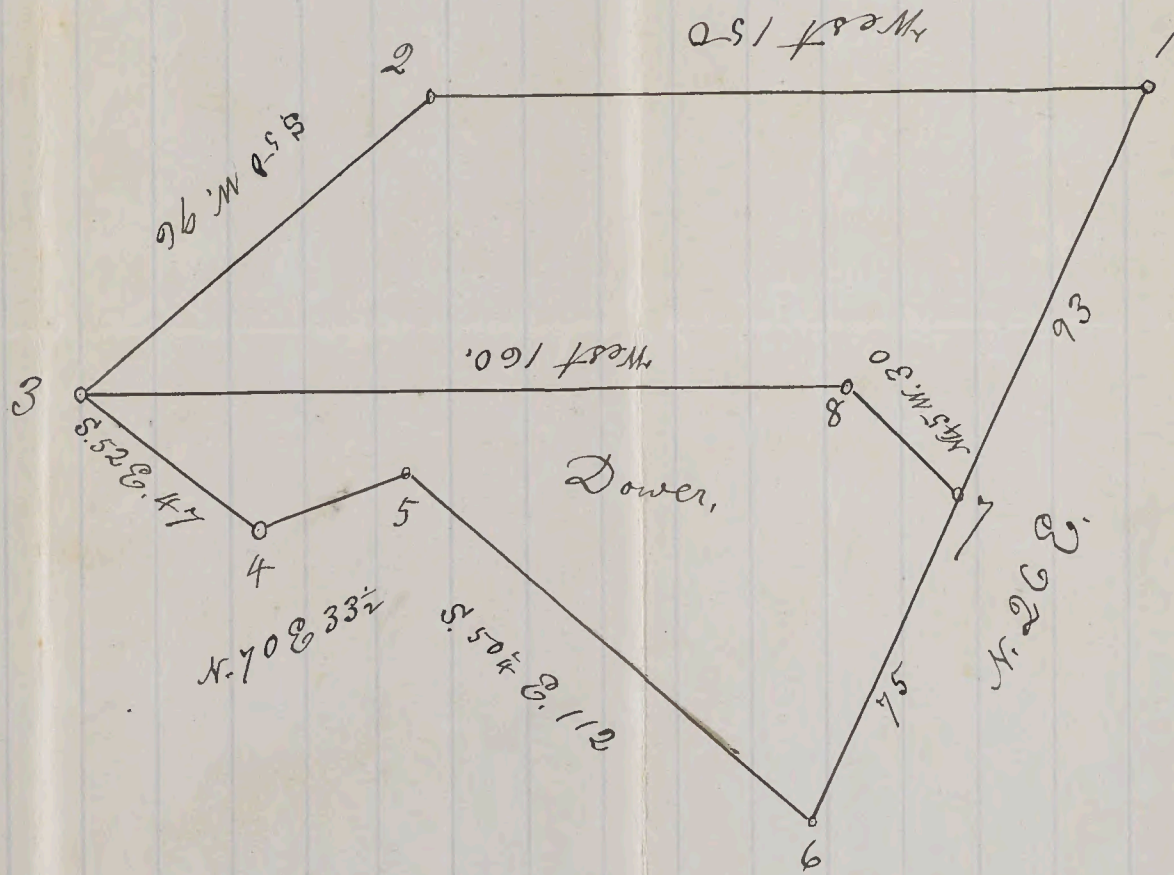 West 150
1
2
S. 50 W. 96
93
West 160.
3
8
N45 W. 30
S. 52 E. 47
Dower,
5
7
4
N. 26 E.
N. 70 E 33½
S. 50¼ E. 112
75
6